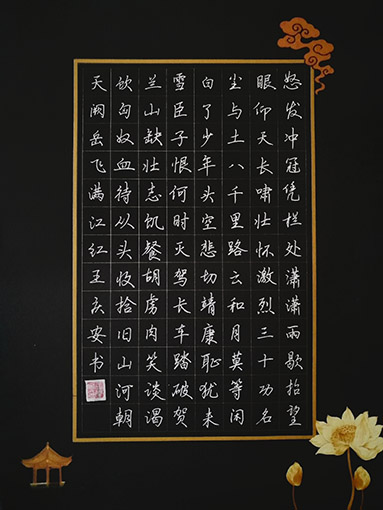 怒发冲冠凭栏处潇潇雨歇抬望
眼仰天长啸壮怀激烈三十功名
尘与土八千里路云和月莫等闲
白了少年头空悲切靖康耻犹未
雪臣子恨何时灭驾长车踏破贺
兰山缺壮志饥餐胡虏肉笑谈渴
饮匈奴血待从头收拾旧山河朝
天阙岳飞满江红王庆安书